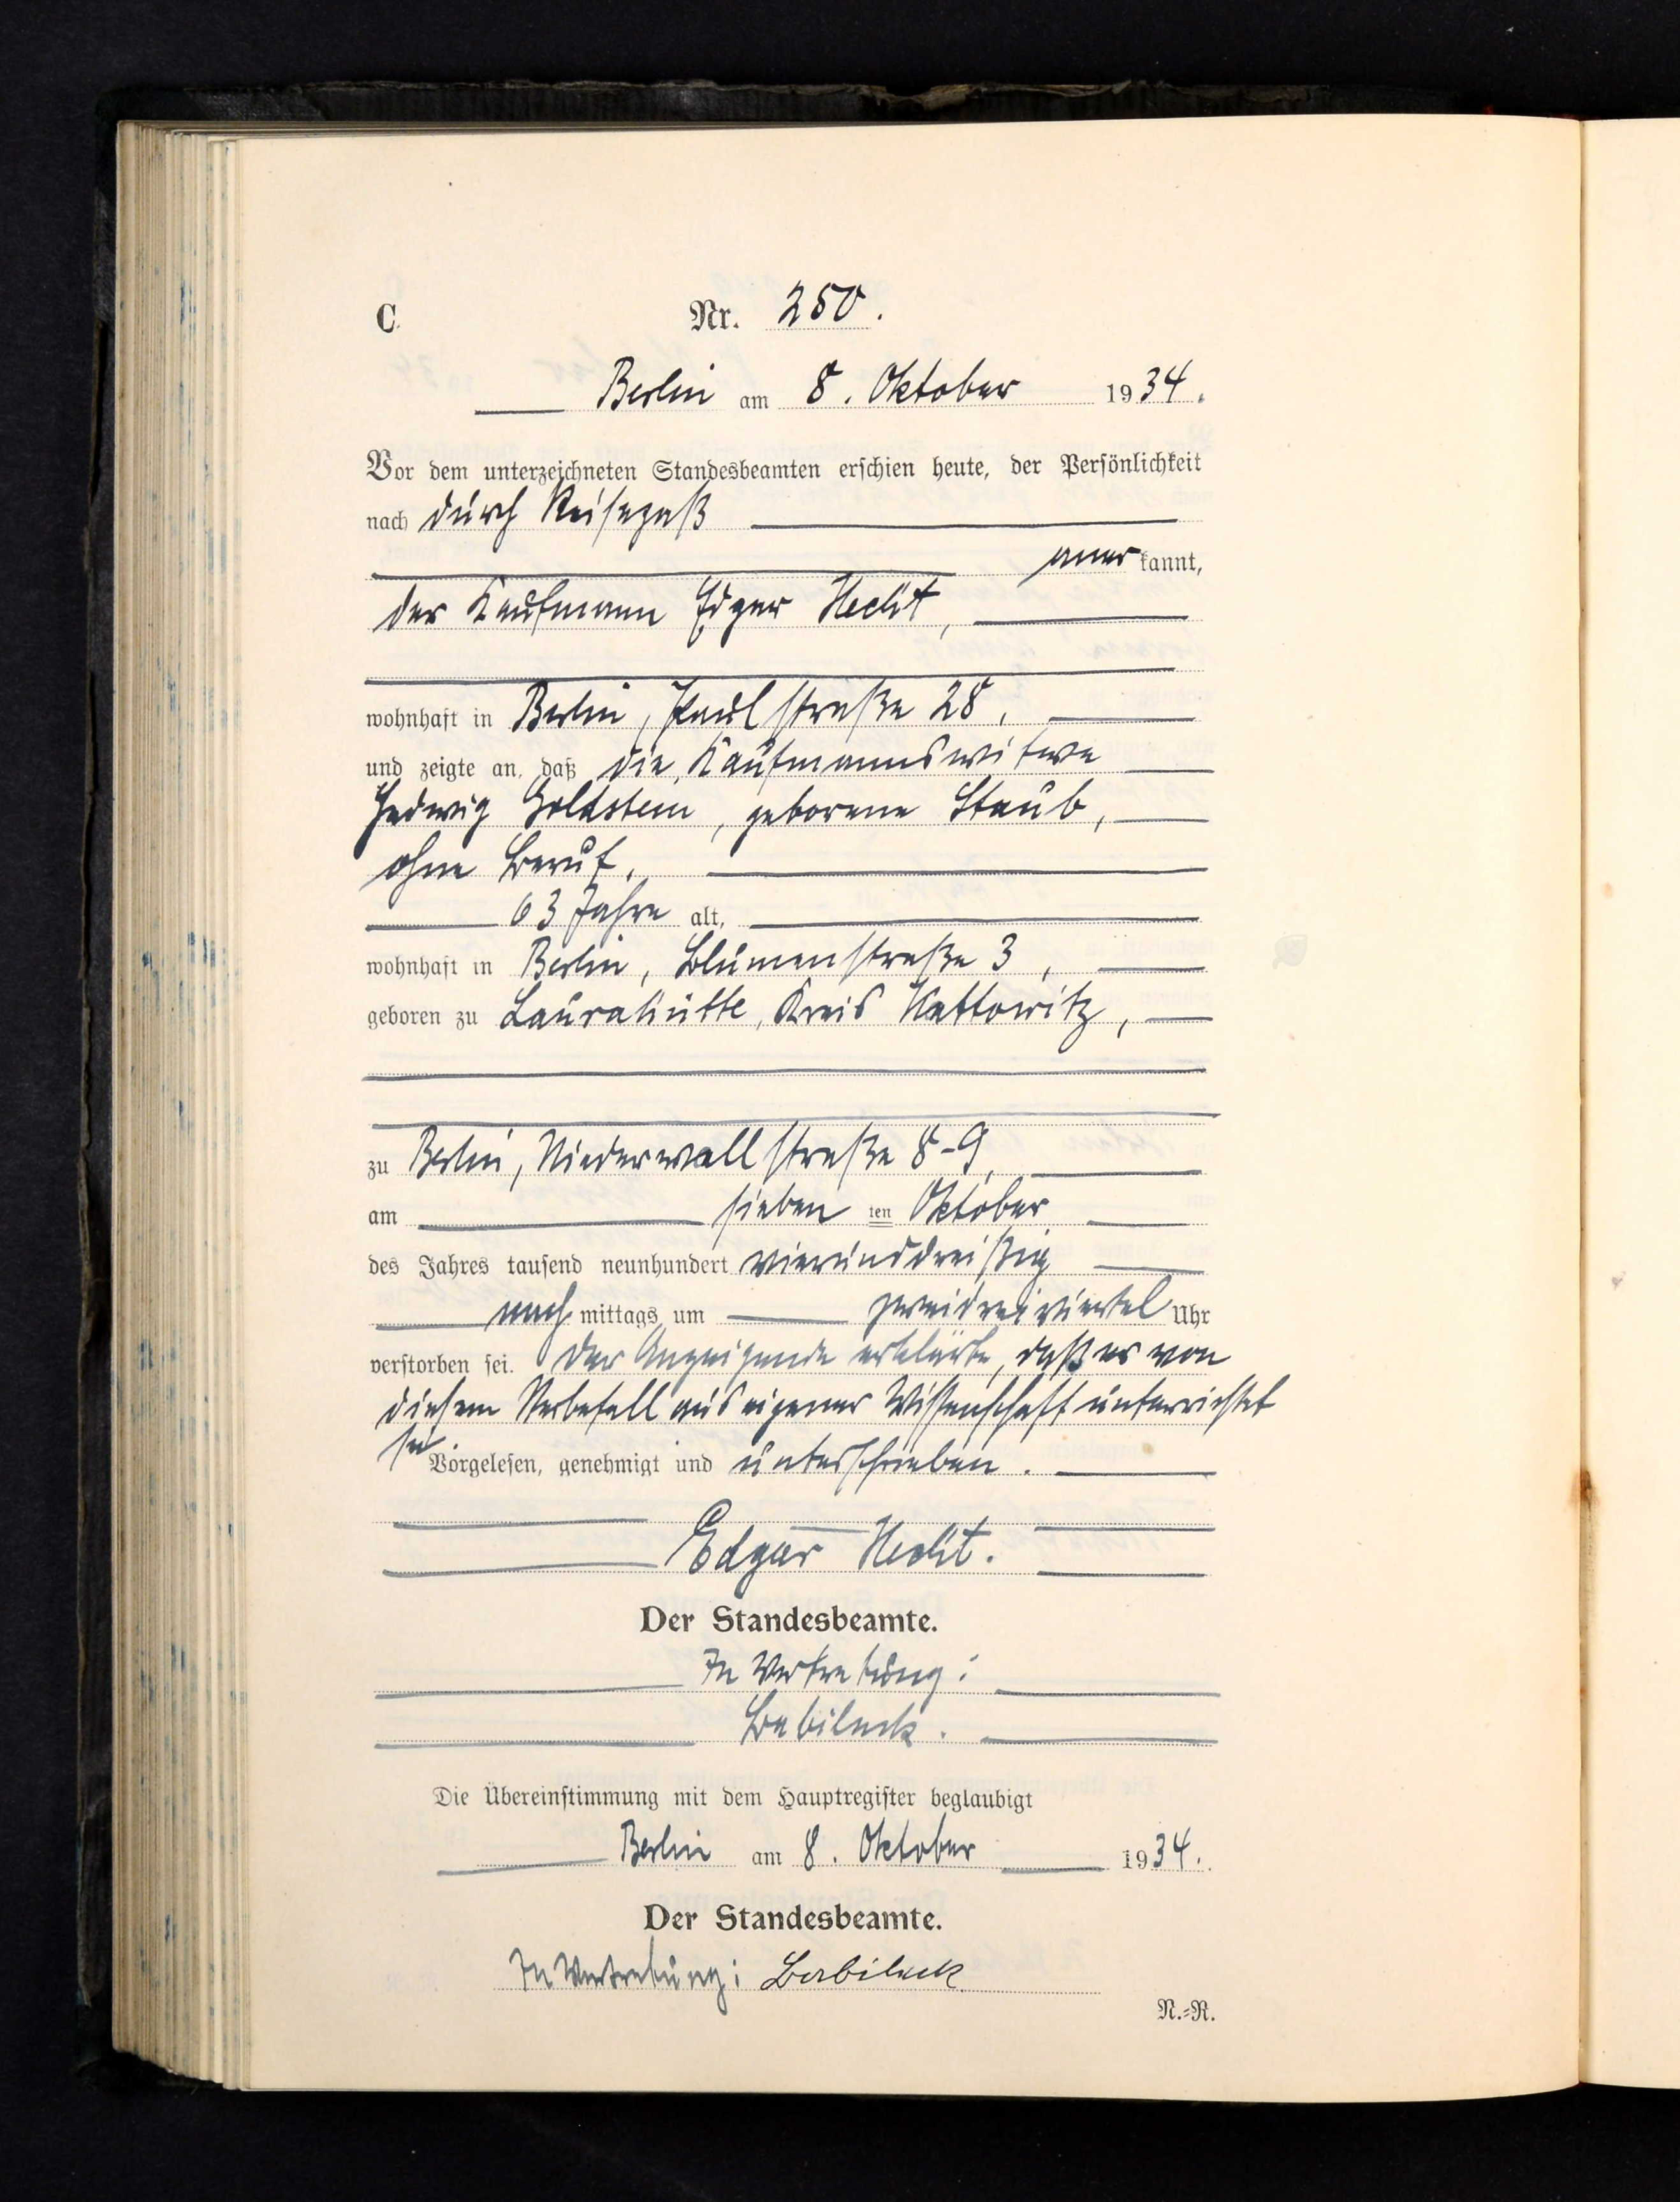 C.
Nr. 250.
Berlin am 8. Oktober 1934.
Vor dem unterzeichneten Standesbeamten erschien heute, der Persönlichkeit
nach durch Reisepaß
anerkannt,
der Kaufmann Edgar Hecht,
wohnhaft in Berlin, Paulstraße 28,
und zeigte an, daß die Kaufmannswitwe
Hedwig Goldstein, geborene Staub,
ohne Beruf,
63 Jahre alt,
wohnhaft in Berlin, Blumenstraße 3,
geboren zu Laurahütte, Kreis Kattowitz,
zu Berlin, Niederwallstraße 8-9,
am sieben ten Oktober
des Jahres tausend neunhundert vierunddreißig
nachmittags um zweidreiviertel Uhr
verstorben sei. Der Anzeigende erklärte, daß er von
diesem Sterbefall aus eigener Wissenschaft unterrichtet
sei.
Vorgelesen, genehmigt und unterschrieben.
Edgar Hecht.
Der Standesbeamte.
In Vertretung:
Die Übereinstimmung mit dem Hauptregister beglaubigt
Berlin am 8. Oktober 1934.
Der Standesbeamte.
In Vertretung:
N.=R.